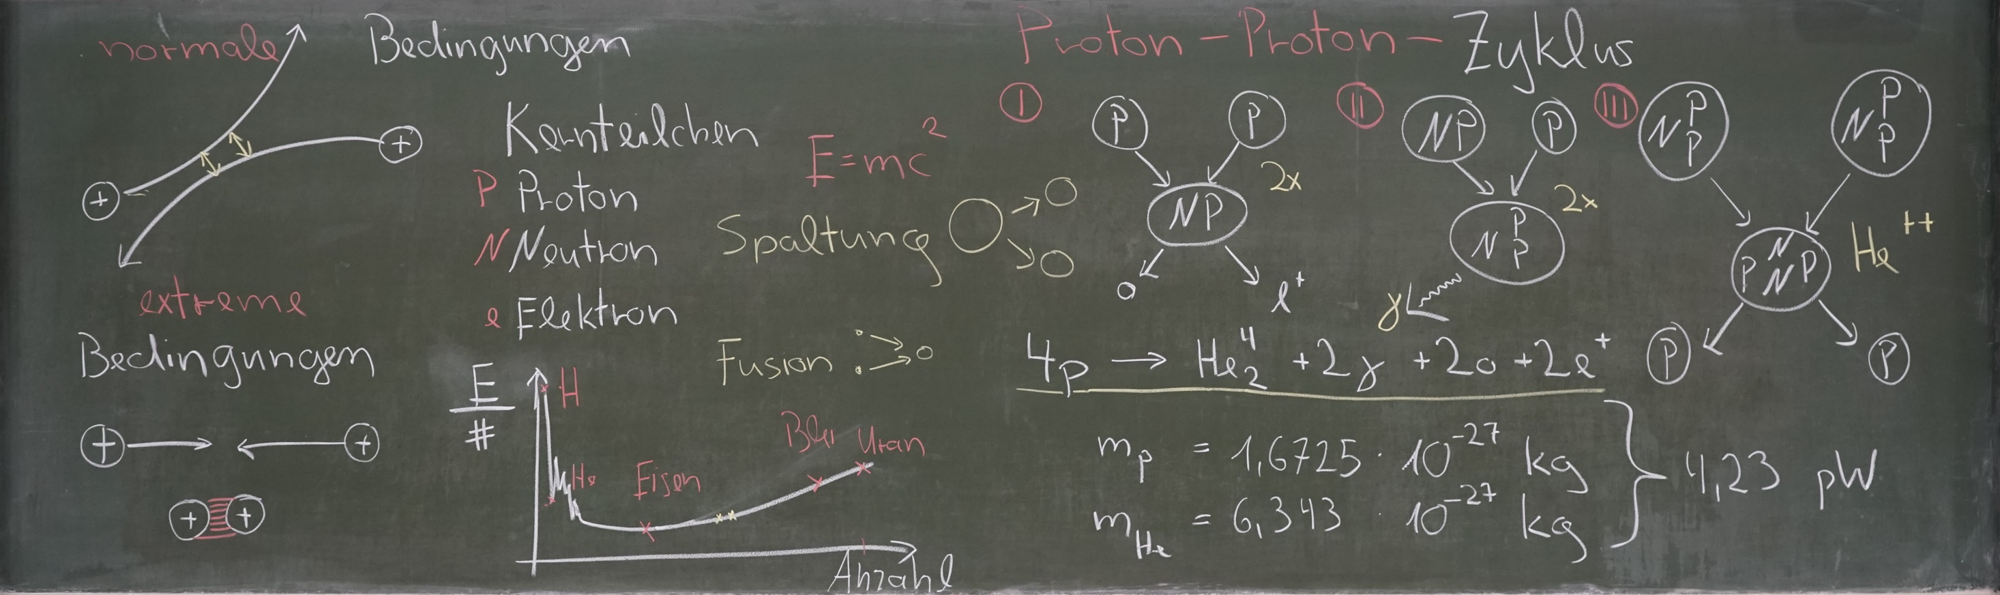 normale Bedingungen
+
+
extreme
Bedingungen
+ +
+ +
Kernteilchen
P Proton
N Neutron
e Elektron
E=mc²
Spaltung
Fusion
E
#
H
He
Eisen
Blei Uran
Anzahl
Proton-Proton-Zyklus
I
P P
2x
NP
o e⁺
II
NP P
2x
N P P
γ
III
N P P N P P
P N N P
He⁺⁺
P P
4p → He⁴₂ + 2γ + 2o + 2e⁺
mₚ = 1,6725 · 10⁻²⁷ kg
m_He = 6,343 · 10⁻²⁷ kg
4,23 pW